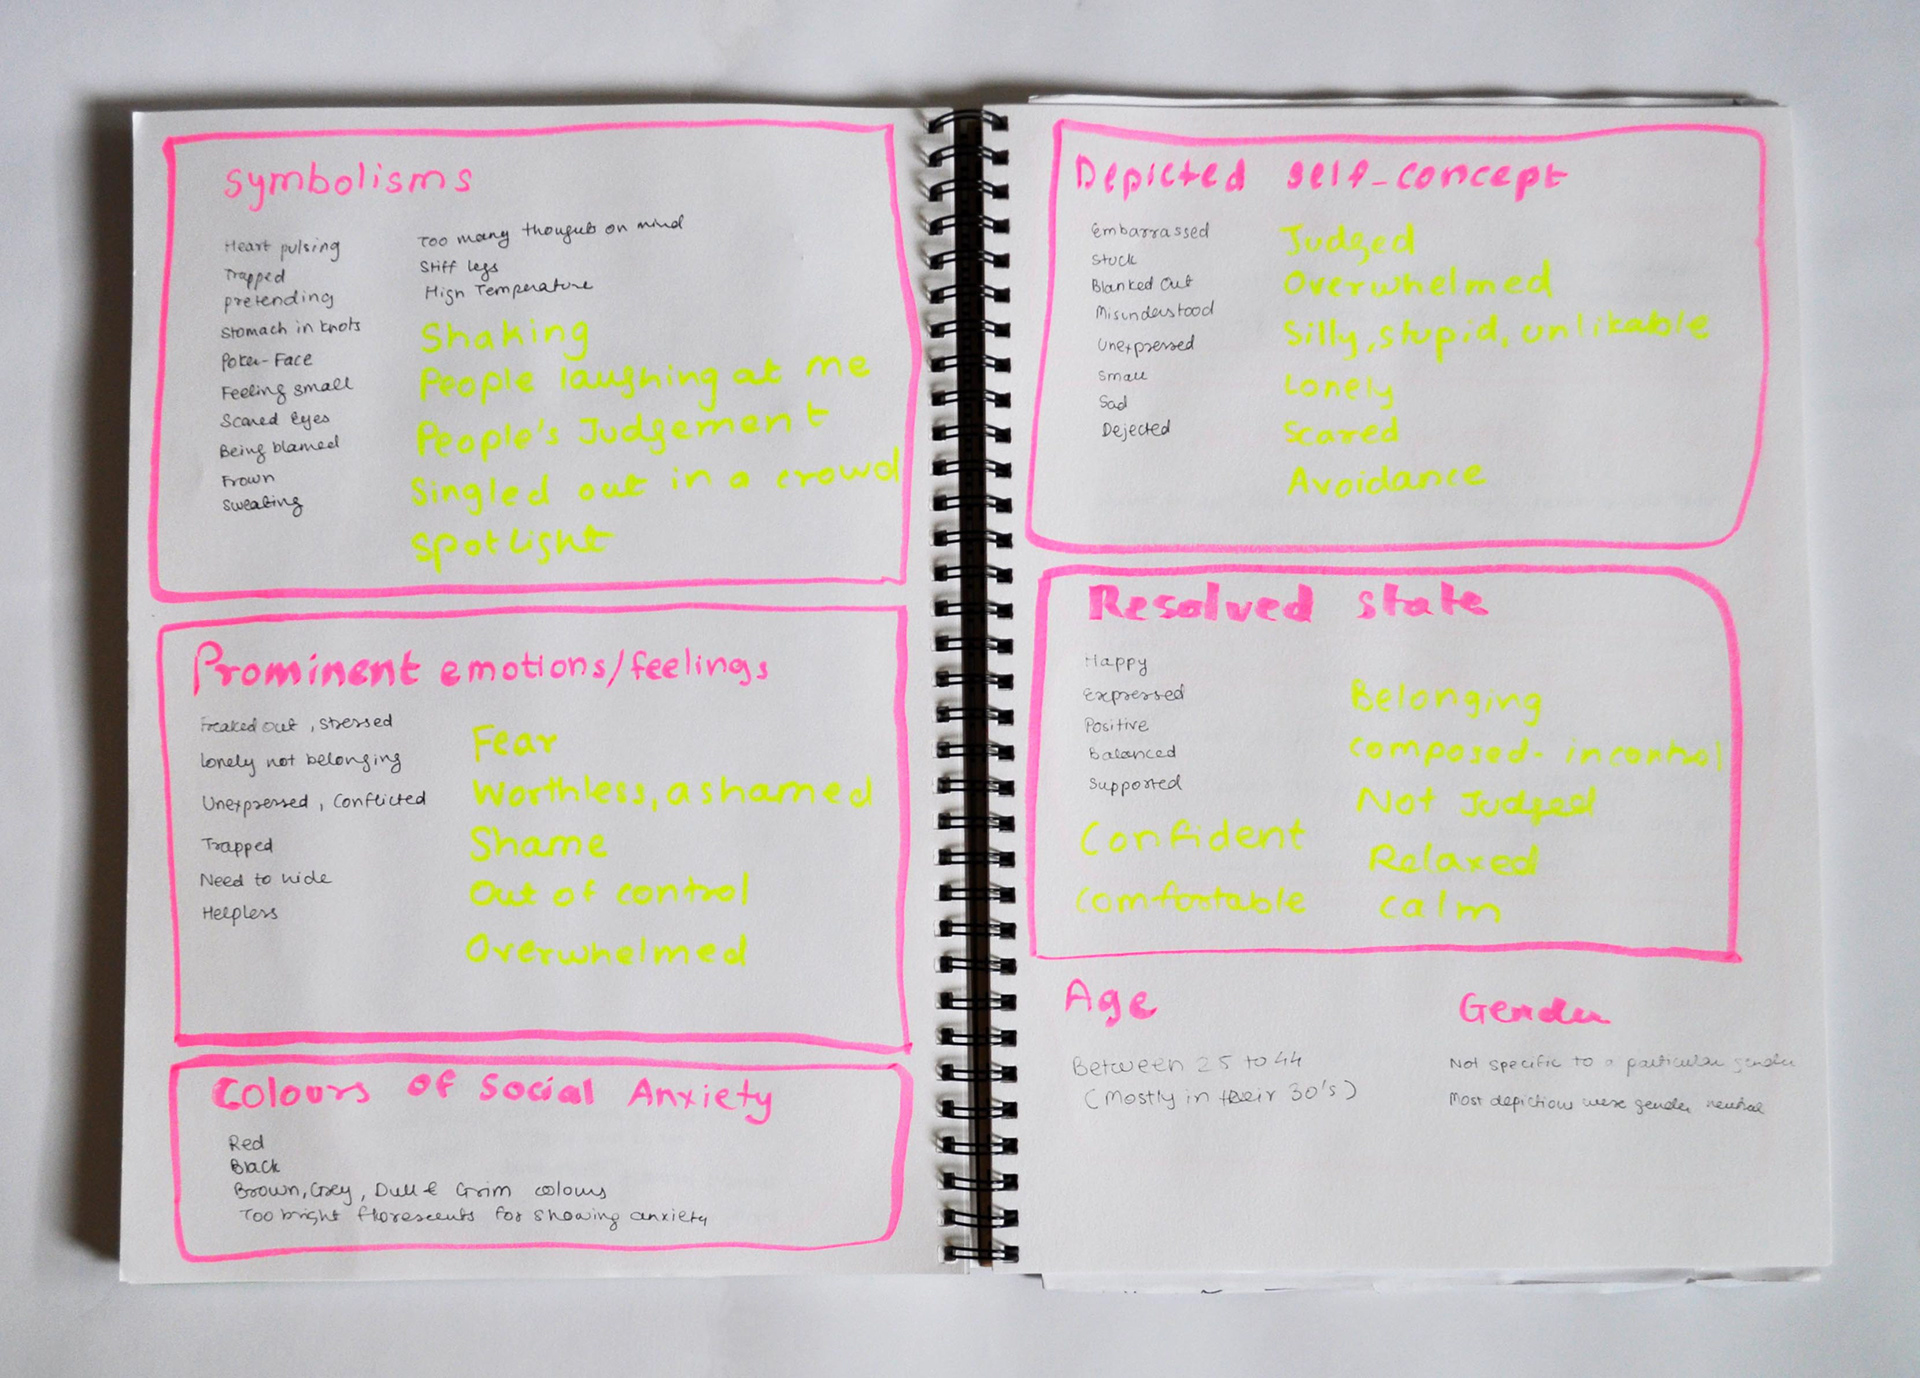 Symbolisms
Heart pulsing
Trapped
pretending
Stomach in knots
Poker-Face
Feeling small
Scared Eyes
Being blamed
Frown
Sweating
Too many thougts on mind
Stiff legs
High Temperature
Shaking
People laughing at me
People's Judgement
Singled out in a crowd
Spotlight
Prominent emotions/feelings
Freaked out, stressed
lonely not belonging
Unexpressed, Conflicted
Trapped
Need to hide
Helpless
Fear
Worthless, ashamed
Shame
Out of control
Overwhelmed
Colours of Social Anxiety
Red
Black
Brown, Grey, Dull & Grim colours
Too bright florescents for showing anxiety
Depicted self-concept
Embarrassed
Stuck
Blanked Out
Misunderstood
Unexpressed
Small
Sad
Dejected
Judged
Overwhelmed
Silly, stupid, unlikable
Lonely
Scared
Avoidance
Resolved state
Happy
Expressed
Positive
Balanced
Supported
Confident
Comfortable
Belonging
Composed - in control
Not Judged
Relaxed
Calm
Age
Between 25 to 44
(Mostly in their 30's)
Gender
Not specific to a particular gender
Most depictions were gender neutral